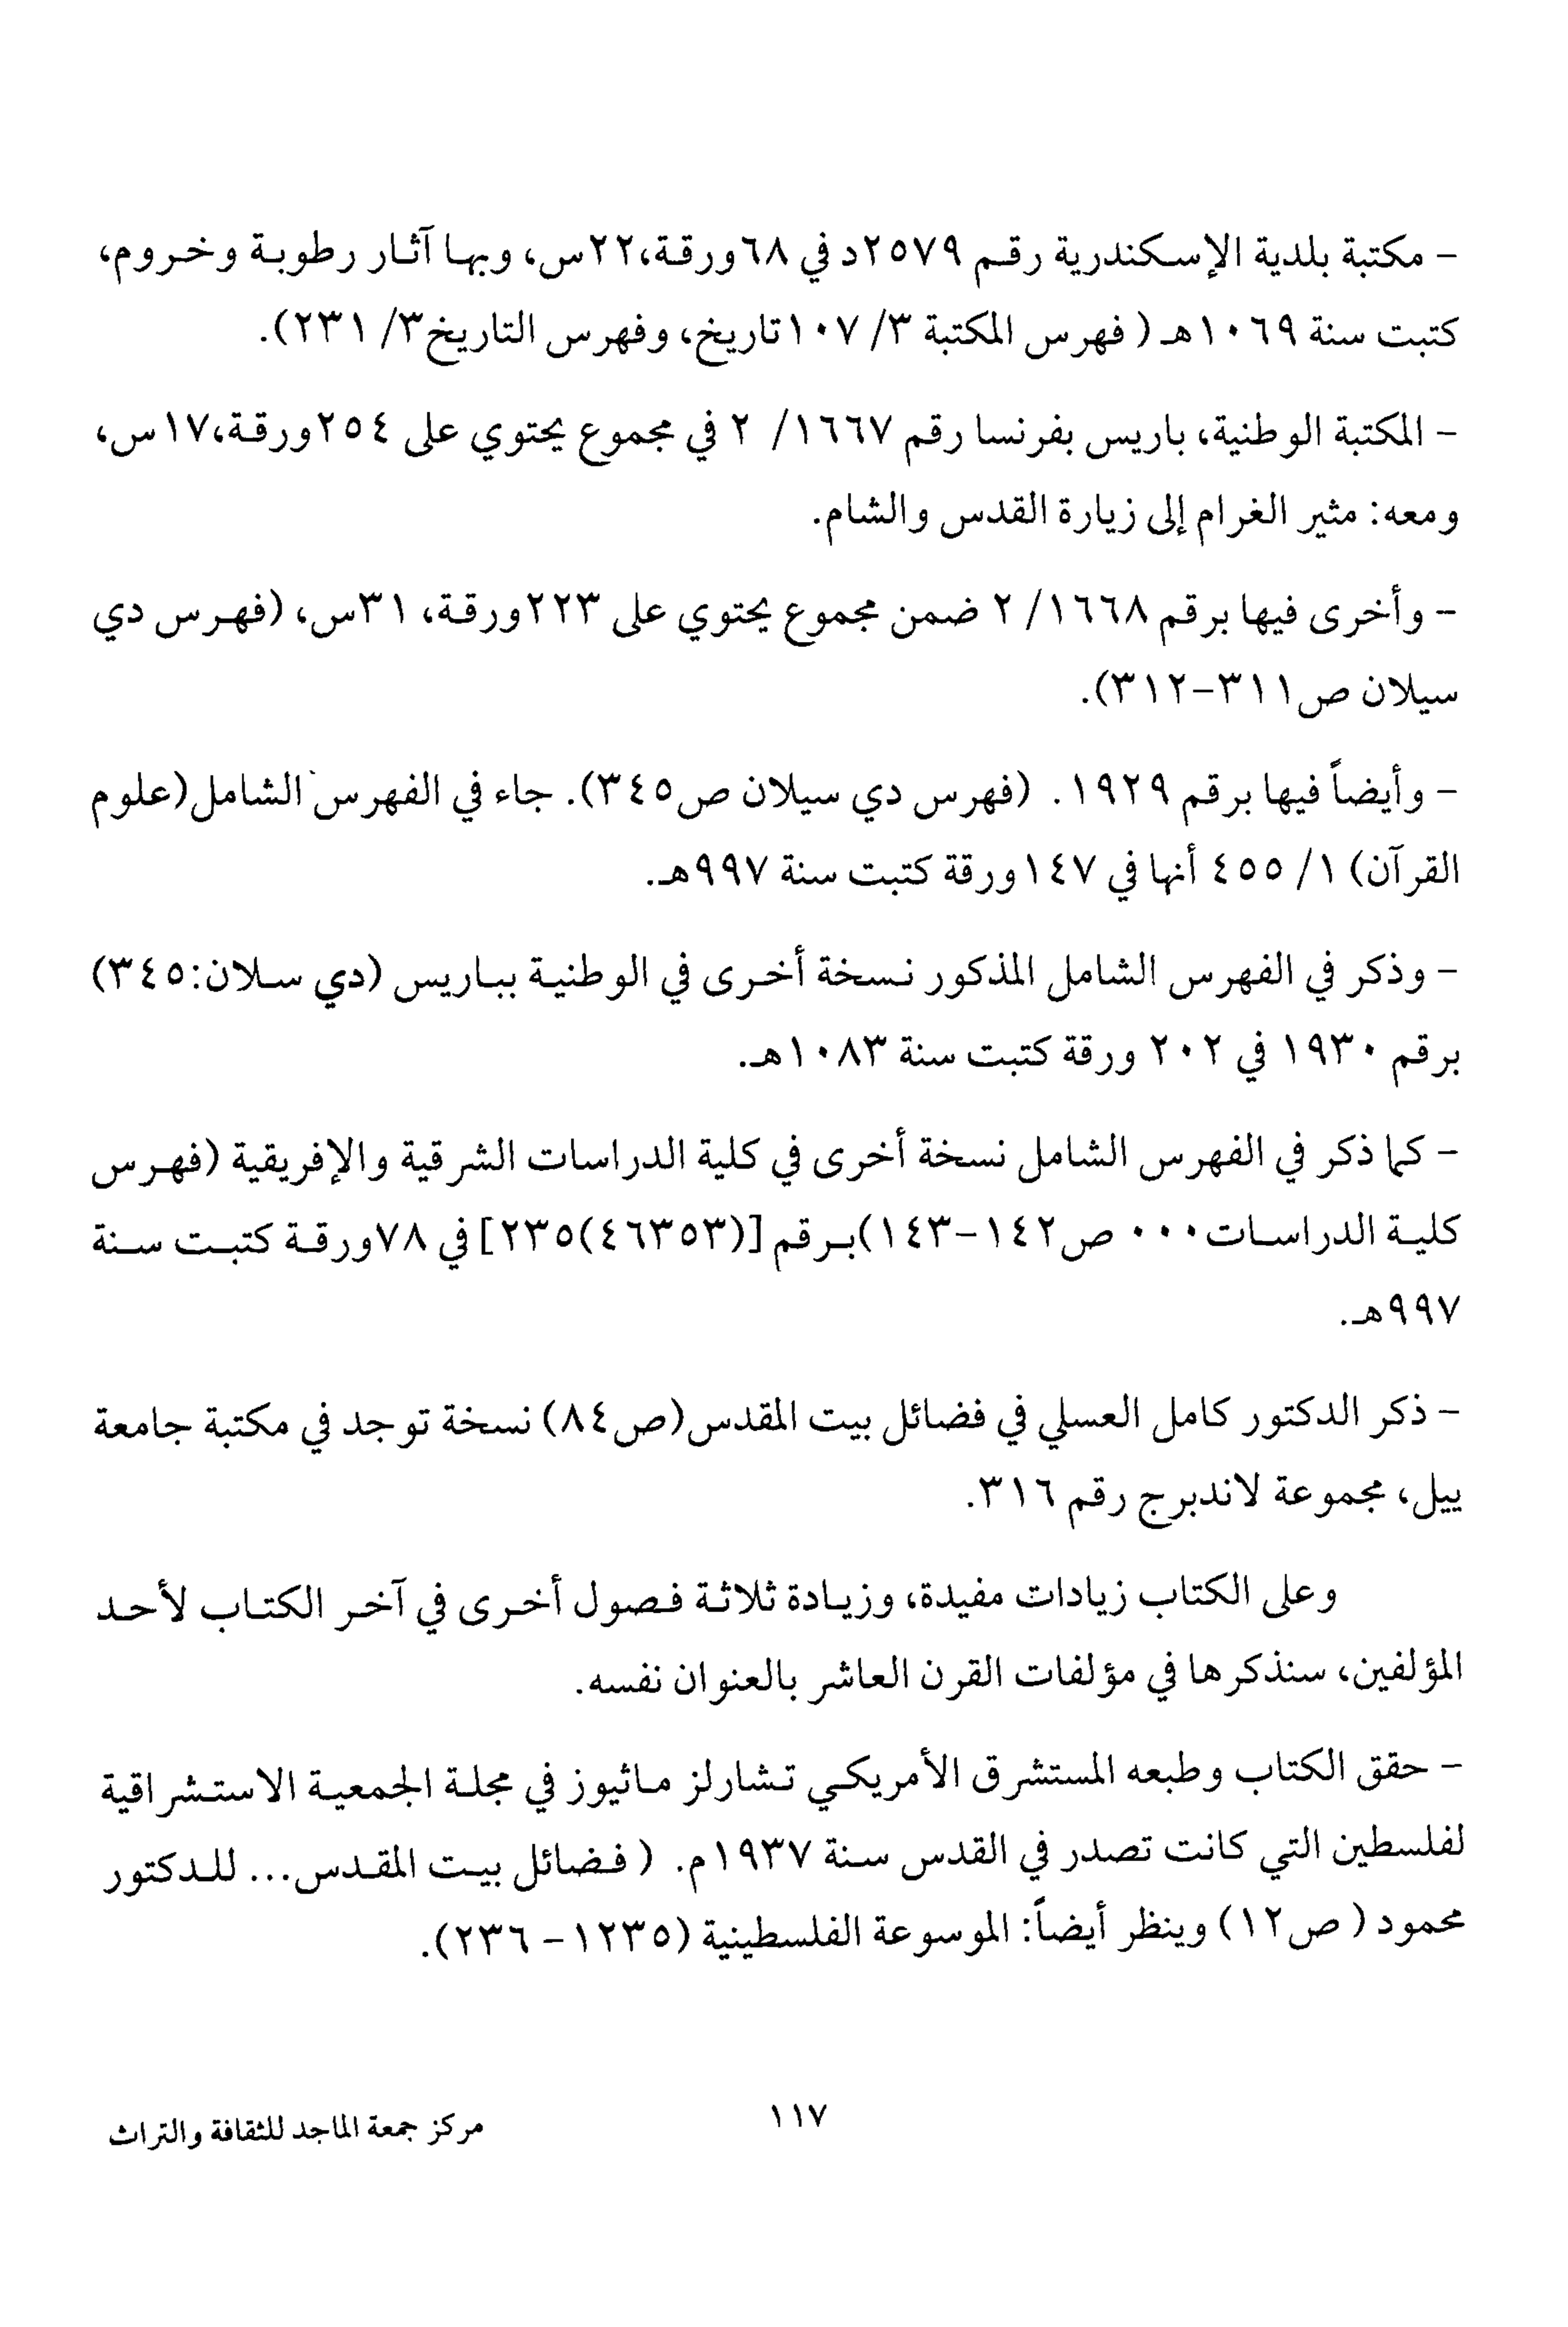 - مكتبة بلدية الإسكندرية رقم ٢٥٧٩د في ٦٨ورقة،٢٢س، وبها آثار رطوبة وخروم،
كتبت سنة ١٠٦٩هـ ( فهرس المكتبة ٣/ ١٠٧تاريخ، وفهرس التاريخ٣/ ٢٣١).
- المكتبة الوطنية، باريس بفرنسا رقم ١٦٦٧/ ٢ في مجموع يحتوي على ٢٥٤ورقة،١٧س،
ومعه: مثير الغرام إلى زيارة القدس والشام.
- وأخرى فيها برقم ١٦٦٨/ ٢ ضمن مجموع يحتوي على ٢٢٣ورقة، ٣١س، (فهرس دي
سيلان ص٣١١-٣١٢).
- وأيضاً فيها برقم ١٩٢٩. (فهرس دي سيلان ص٣٤٥). جاء في الفهرس الشامل(علوم
القرآن) ١/ ٤٥٥ أنها في ١٤٧ورقة كتبت سنة ٩٩٧هـ.
- وذكر في الفهرس الشامل المذكور نسخة أخرى في الوطنية بباريس (دي سلان:٣٤٥)
برقم ١٩٣٠ في ٢٠٢ ورقة كتبت سنة ١٠٨٣هـ.
- كما ذكر في الفهرس الشامل نسخة أخرى في كلية الدراسات الشرقية والإفريقية (فهرس
كلية الدراسات٠٠٠ ص١٤٢-١٤٣)برقم [(٤٦٣٥٣)٢٣٥] في ٧٨ورقة كتبت سنة
٩٩٧هـ.
- ذكر الدكتور كامل العسلي في فضائل بيت المقدس(ص٨٤) نسخة توجد في مكتبة جامعة
ييل، مجموعة لاندبرج رقم ٣١٦.
وعلى الكتاب زيادات مفيدة، وزيادة ثلاثة فصول أخرى في آخر الكتاب لأحد
المؤلفين، سنذكرها في مؤلفات القرن العاشر بالعنوان نفسه.
- حقق الكتاب وطبعه المستشرق الأمريكي تشارلز ماثيوز في مجلة الجمعية الاستشراقية
لفلسطين التي كانت تصدر في القدس سنة ١٩٣٧م. ( فضائل بيت المقدس... للدكتور
محمود ( ص١٢) وينظر أيضاً: الموسوعة الفلسطينية (١٢٣٥- ٢٣٦).
١١٧
مركز جمعة الماجد للثقافة والتراث